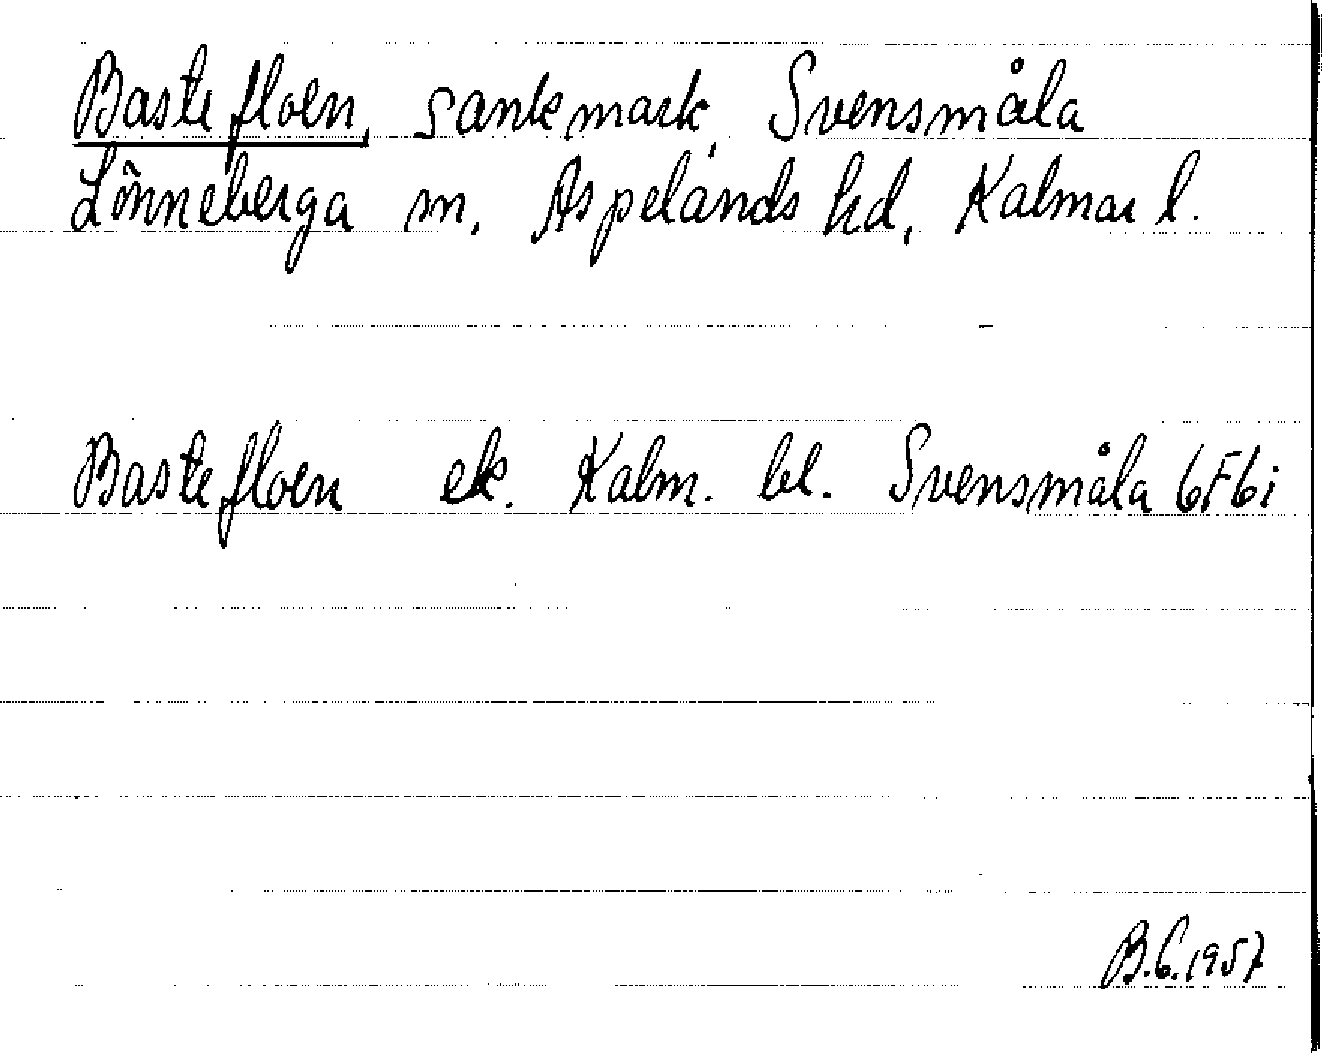 Bastefloen, sankmark, Svensmåla
Lönneberga sn, Aspelands hd, Kalmar l.
Bastefloen ek. Kalm. bl. Svensmåla 6F6i
B.C. 1957